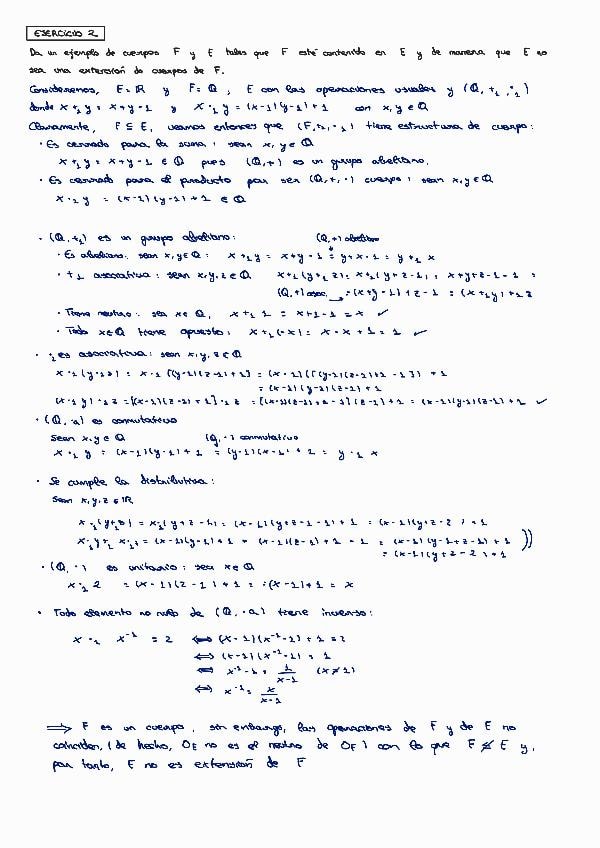 EJERCICIO 2
Da un ejemplo de cuerpos F y E tales que F esté contenido en E y de manera que E no
sea una extensión de cuerpos de F.
Consideremos, E=ℝ y F=ℚ, E con las operaciones usuales y (ℚ, +₁, ·₁)
donde x +₁ y = x+y-1 y x ·₁ y = (x-1)(y-1)+1 con x,y∈ℚ
Claramente, F ⊆ E, veamos entonces que (F, +₁, ·₁) tiene estructura de cuerpo:
· Es cerrado para la suma: sean x,y∈ℚ
x +₁ y = x+y-1 ∈ ℚ pues (ℚ,+) es un grupo abeliano.
· Es cerrado para el producto por ser (ℚ,+,·) cuerpo: sean x,y∈ℚ
x ·₁ y = (x-1)(y-1)+1 ∈ ℚ
· (ℚ,+₁) es un grupo abeliano: (ℚ,+) abeliano
· Es abeliano: sean x,y∈ℚ: x +₁ y = x+y-1 = y+x-1 = y +₁ x
· +₁ asociativa: sean x,y,z∈ℚ x +₁ (y +₁ z) = x +₁ (y+z-1) = x+y+z-1-1 =
(ℚ,+) asoc. = (x+y-1)+z-1 = (x +₁ y) +₁ z
· Tiene neutro: sea x∈ℚ, x +₁ 1 = x+1-1 = x ✓
· Todo x∈ℚ tiene opuesto: x +₁ (-x) = x-x+1 = 1 ✓
· ·₁ es asociativa: sean x,y,z∈ℚ
x ·₁ (y ·₁ z) = x ·₁ [(y-1)(z-1)+1] = (x-1)([(y-1)(z-1)+1-1]) +1
= (x-1)(y-1)(z-1)+1
(x ·₁ y) ·₁ z = [(x-1)(y-1)+1] ·₁ z = [(x-1)(y-1)+1-1](z-1)+1 = (x-1)(y-1)(z-1)+1 ✓
· (ℚ, ·₁) es conmutativo
Sean x,y∈ℚ (ℚ, ·) conmutativo
x ·₁ y = (x-1)(y-1)+1 = (y-1)(x-1)+1 = y ·₁ x
· Se cumple la distributiva:
Sean x,y,z∈ℝ
x ·₁ (y +₁ z) = x ·₁ (y+z-1) = (x-1)(y+z-1-1)+1 = (x-1)(y+z-2)+1
x ·₁ y +₁ x ·₁ z = (x-1)(y-1)+1 + (x-1)(z-1)+1-1 = (x-1)(y-1+z-1)+1
= (x-1)(y+z-2)+1
· (ℚ, ·₁) es unitario: sea x∈ℚ
x ·₁ 2 = (x-1)(2-1)+1 = (x-1)+1 = x
· Todo elemento no nulo de (ℚ, ·₁) tiene inverso:
x ·₁ x⁻¹ = 2 ⟺ (x-1)(x⁻¹-1)+1 = 2
⟺ (x-1)(x⁻¹-1) = 1
⟺ x⁻¹-1 = 1/(x-1) (x≠1)
⟺ x⁻¹ = x/(x-1)
⟹ F es un cuerpo, sin embargo, las operaciones de F y de E no
coinciden, (de hecho, 0_E no es el neutro de 0_F) con lo que F ≰ E y,
por tanto, E no es extensión de F